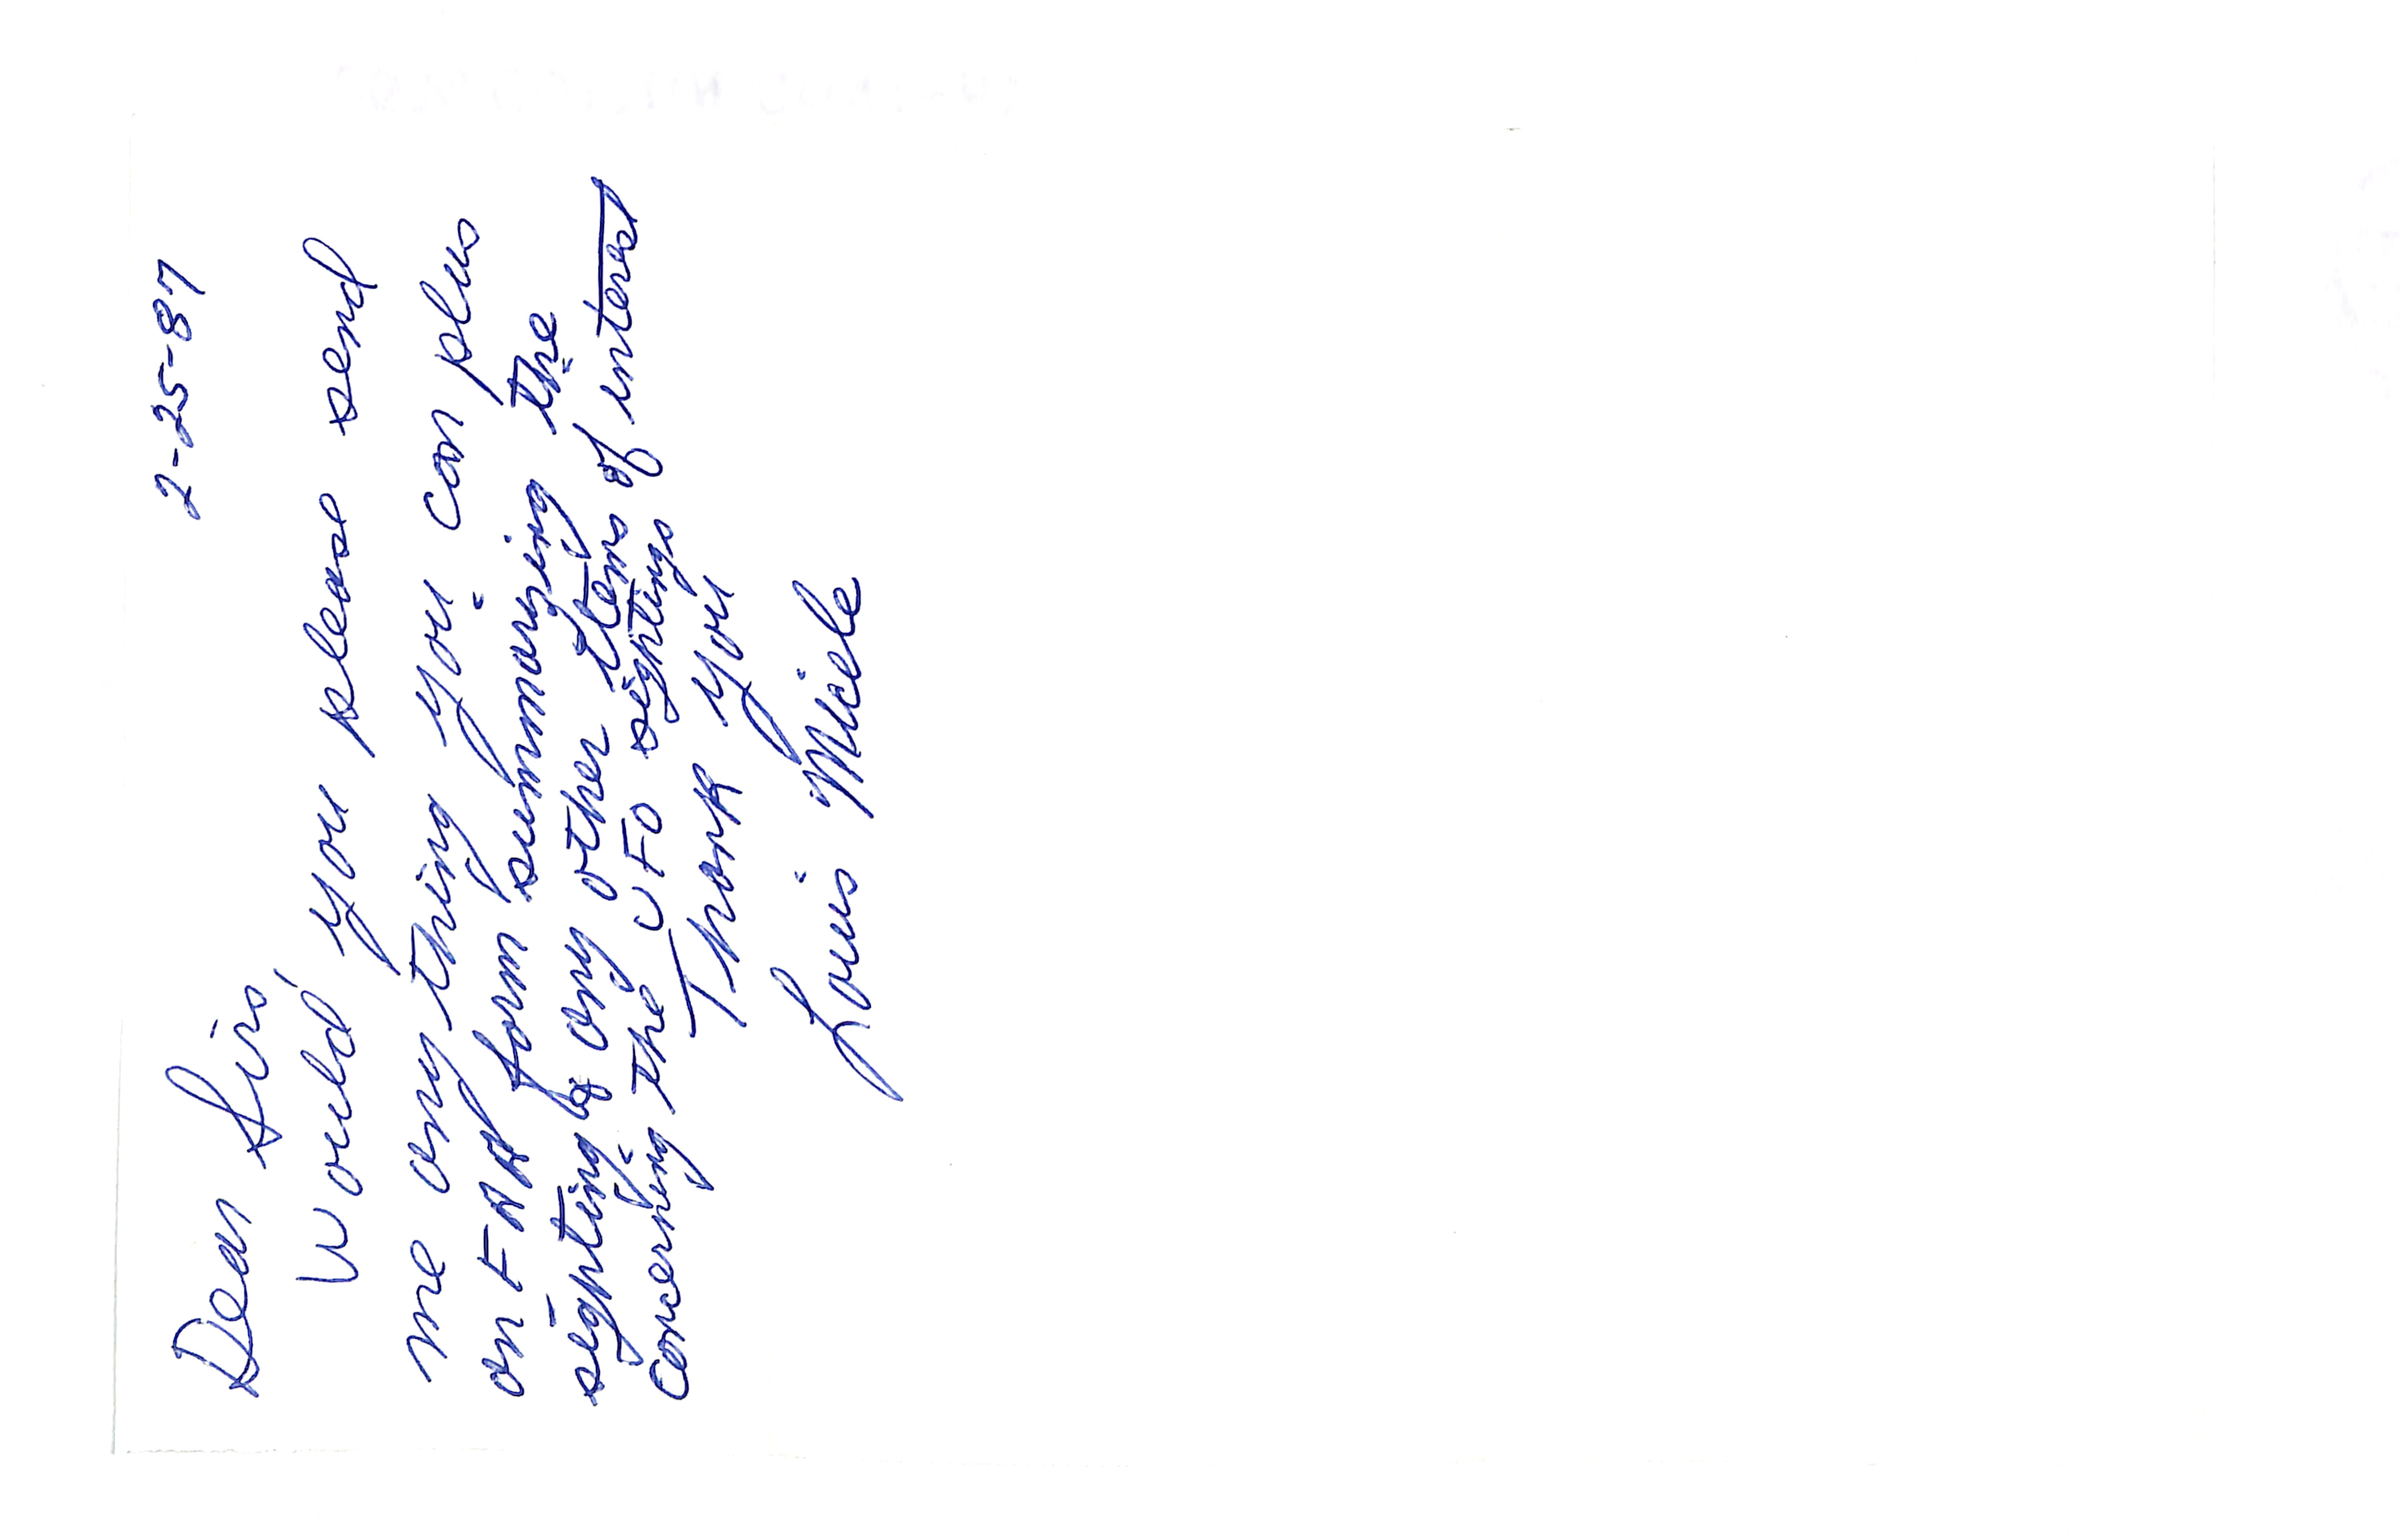 2-25-87
Dear Sirs,
Would you please send
me any thing you can plus
an FAA form summarizing the
sighting & any other items of interest
concerning the UFO sightings
Thank you
Louis Miele